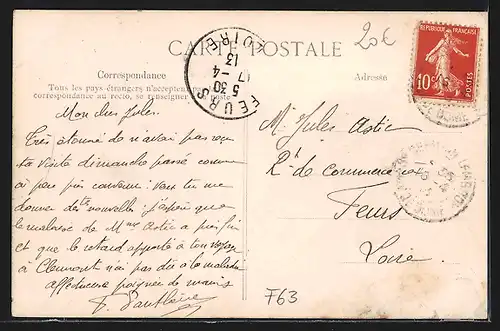 CARTE POSTALE
20€
RÉPUBLIQUE FRANÇAISE
10c
POSTES
Correspondance
Adresse
Tous les pays étrangers n'acceptent pas la
correspondance au recto, se renseigner à la poste
FEURS
5 30
17 -4
13
LOIRE
Mon cher Jules.
Très étonné de n'avoir pas reçu
ta visite dimanche passé comme
il avait été convenu. Veux tu me
donner des tes nouvelles; j'espère que
le malaise de Mme Astic a pris fin
et que le retard apporté à ton voyage
à Clermont n'ai pas dû à la maladie
affectueuse poignée de mains
Mr Jules Astic
Rt de Commerce
Feurs
Loire.
F63